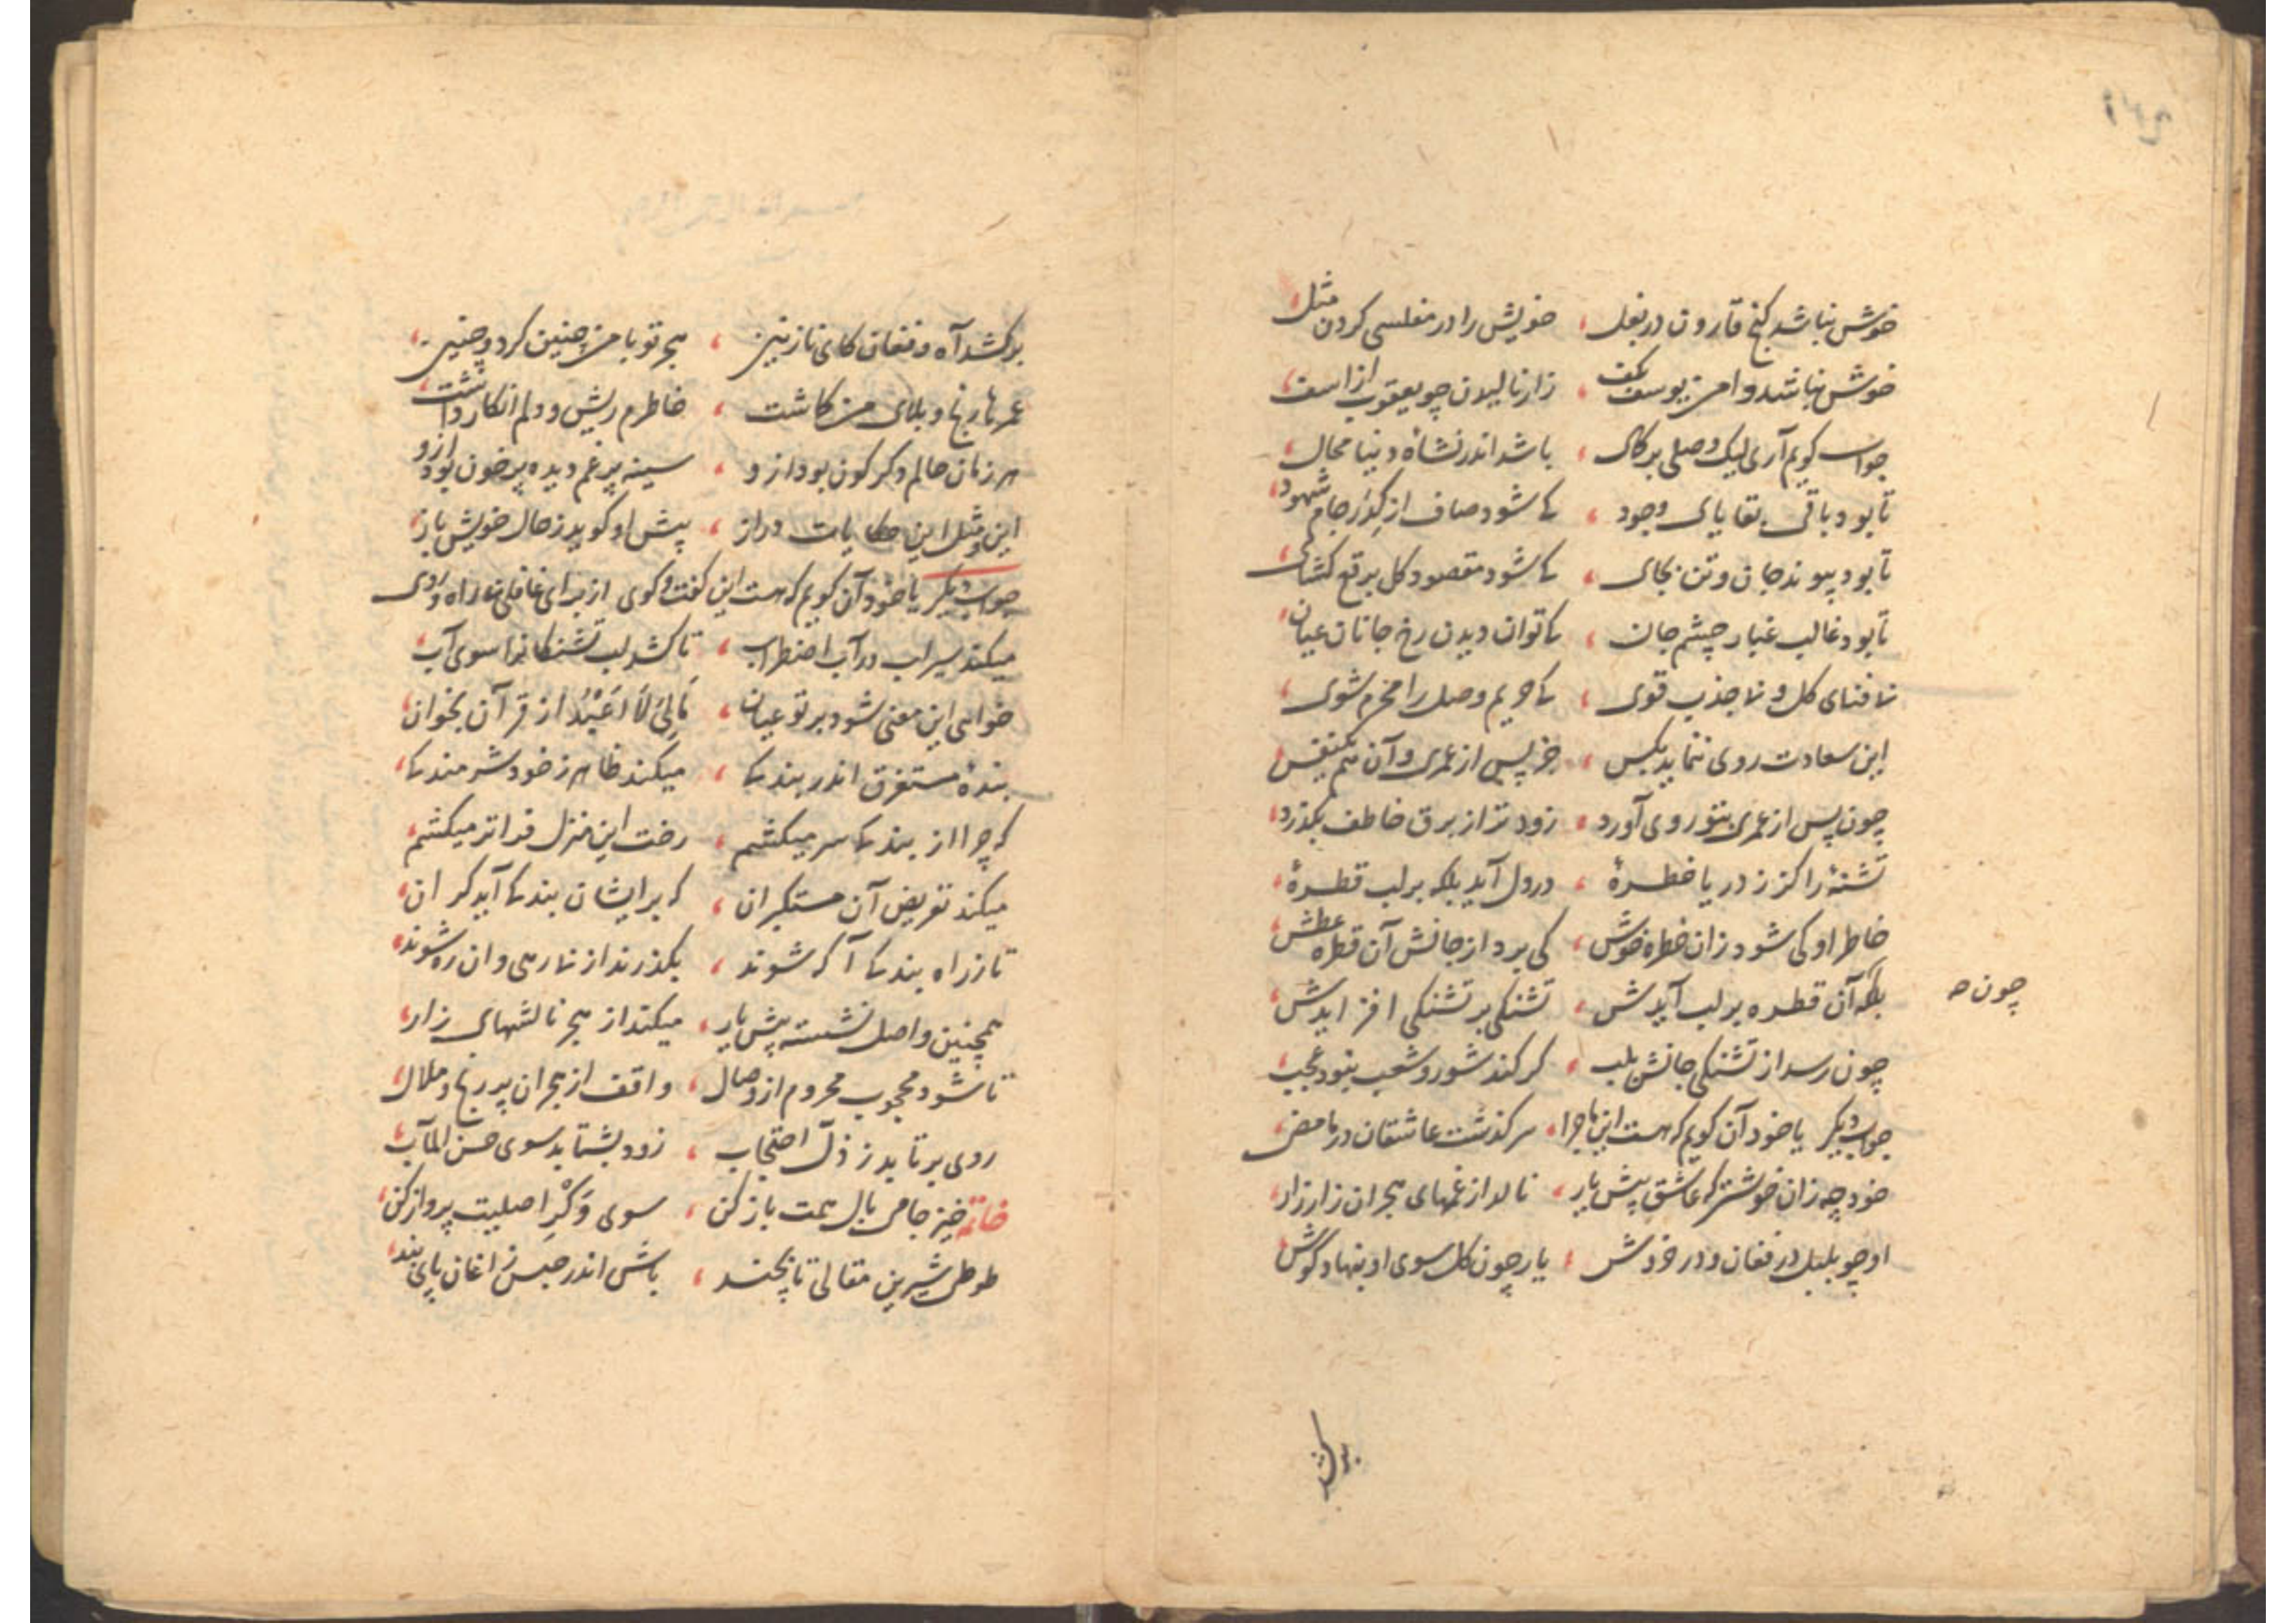 خوش نباشد کنج قارون در بغل ، خویش را در مفلسی کردن مثل
خوش نباشد دامن یوسف بکف ، زار نالیدن چو یعقوب از اسف
جواب گویم آری لیک وصلی بر کمال ، باشد اندر نشاه دنیا محال
تا بود باقی بقایای وجود ، کی شود صاف از کدر جام شهود
تا بود پیوند جان و تن بجای ، کی شود مقصود کل برقع کشای
تا بود غالب غبار چشم جان ، کی توان دیدن رخ جانان عیان
نا فنای کل و نا جذب قوی ، کی حریم وصل را محرم شوی
این سعادت روی ننماید بکس ، جز پس از عمری و آن هم یکنفس
چون پس از عمری بتو روی آورد ، زودتر از برق خاطف بگذرد
تشنهٔ را کز ز دریا خطرهٔ ، در دل آید بلکه بر لب قطرهٔ
خاطر او کی شود زان خطره خوش ، کی برد از جانش آن قطره عطش
بلکه آن قطره بر لب آیدش ، تشنگی بر تشنگی افزایدش
چون
چون رسد از تشنگی جانش بلب ، گر کند شور و شعب نبود عجب
جواب دیگر یا خود آن گویم که هست این ماجرا ، سرگذشت عاشقان در ما مضی
خود چه زان خوشتر که عاشق پیش یار ، نالد از غمهای هجران زار زار
او چو بلبل در فغان و در خروش ، یار چون گل سوی او بنهاد گوش
بر کشد
بر کشد آه و فغان کای نازنین ، هجر تو با من چنین کرد و چنین
عمرها رنج و بلای من گماشت ، خاطرم ریش و دلم افکار داشت
هر زمان حالم دگرگون بود ازو ، سینه پر غم دیده پر خون بود ازو
این و مثل این حکایات دراز ، پیش او گوید ز حال خویش باز
جواب دیگر یا خود آن گویم که هست این گفت و گوی از برای غافلی نا راه روی
میکند سیراب در آب اضطراب ، تا کشد لب تشنگانرا سوی آب
خواهی این معنی شود بر تو عیان ، مَالِیَ لَا اَعْبُدُ از قرآن بخوان
بندهٔ مستغرق اندر بندگی ، میکند ظاهر ز خود شرمندگی
که چرا از بندگی سر میکشم ، رخت این منزل فراتر میکشم
میکند تعریض آن مستکبران ، که بر ایشان بندگی آید گران
تا ز راه بندگی آگه شوند ، بگذرند از نا رهی وان ره شوند
همچنین واصل نشسته پیش یار ، میکند از هجر نالشهای زار
تا شود محجوب محروم از وصال ، واقف از هجران پر رنج و ملال
روی بر تابد ز ذلّ احتجاب ، زود بشتابد سوی حسن المآب
خاتمه خیز جامی بال همت باز کن ، سوی وَکْرِ اصلیت پرواز کن
طوطی شیرین مقالی تا بچند ، باشی اندر حبس زاغان پای بند